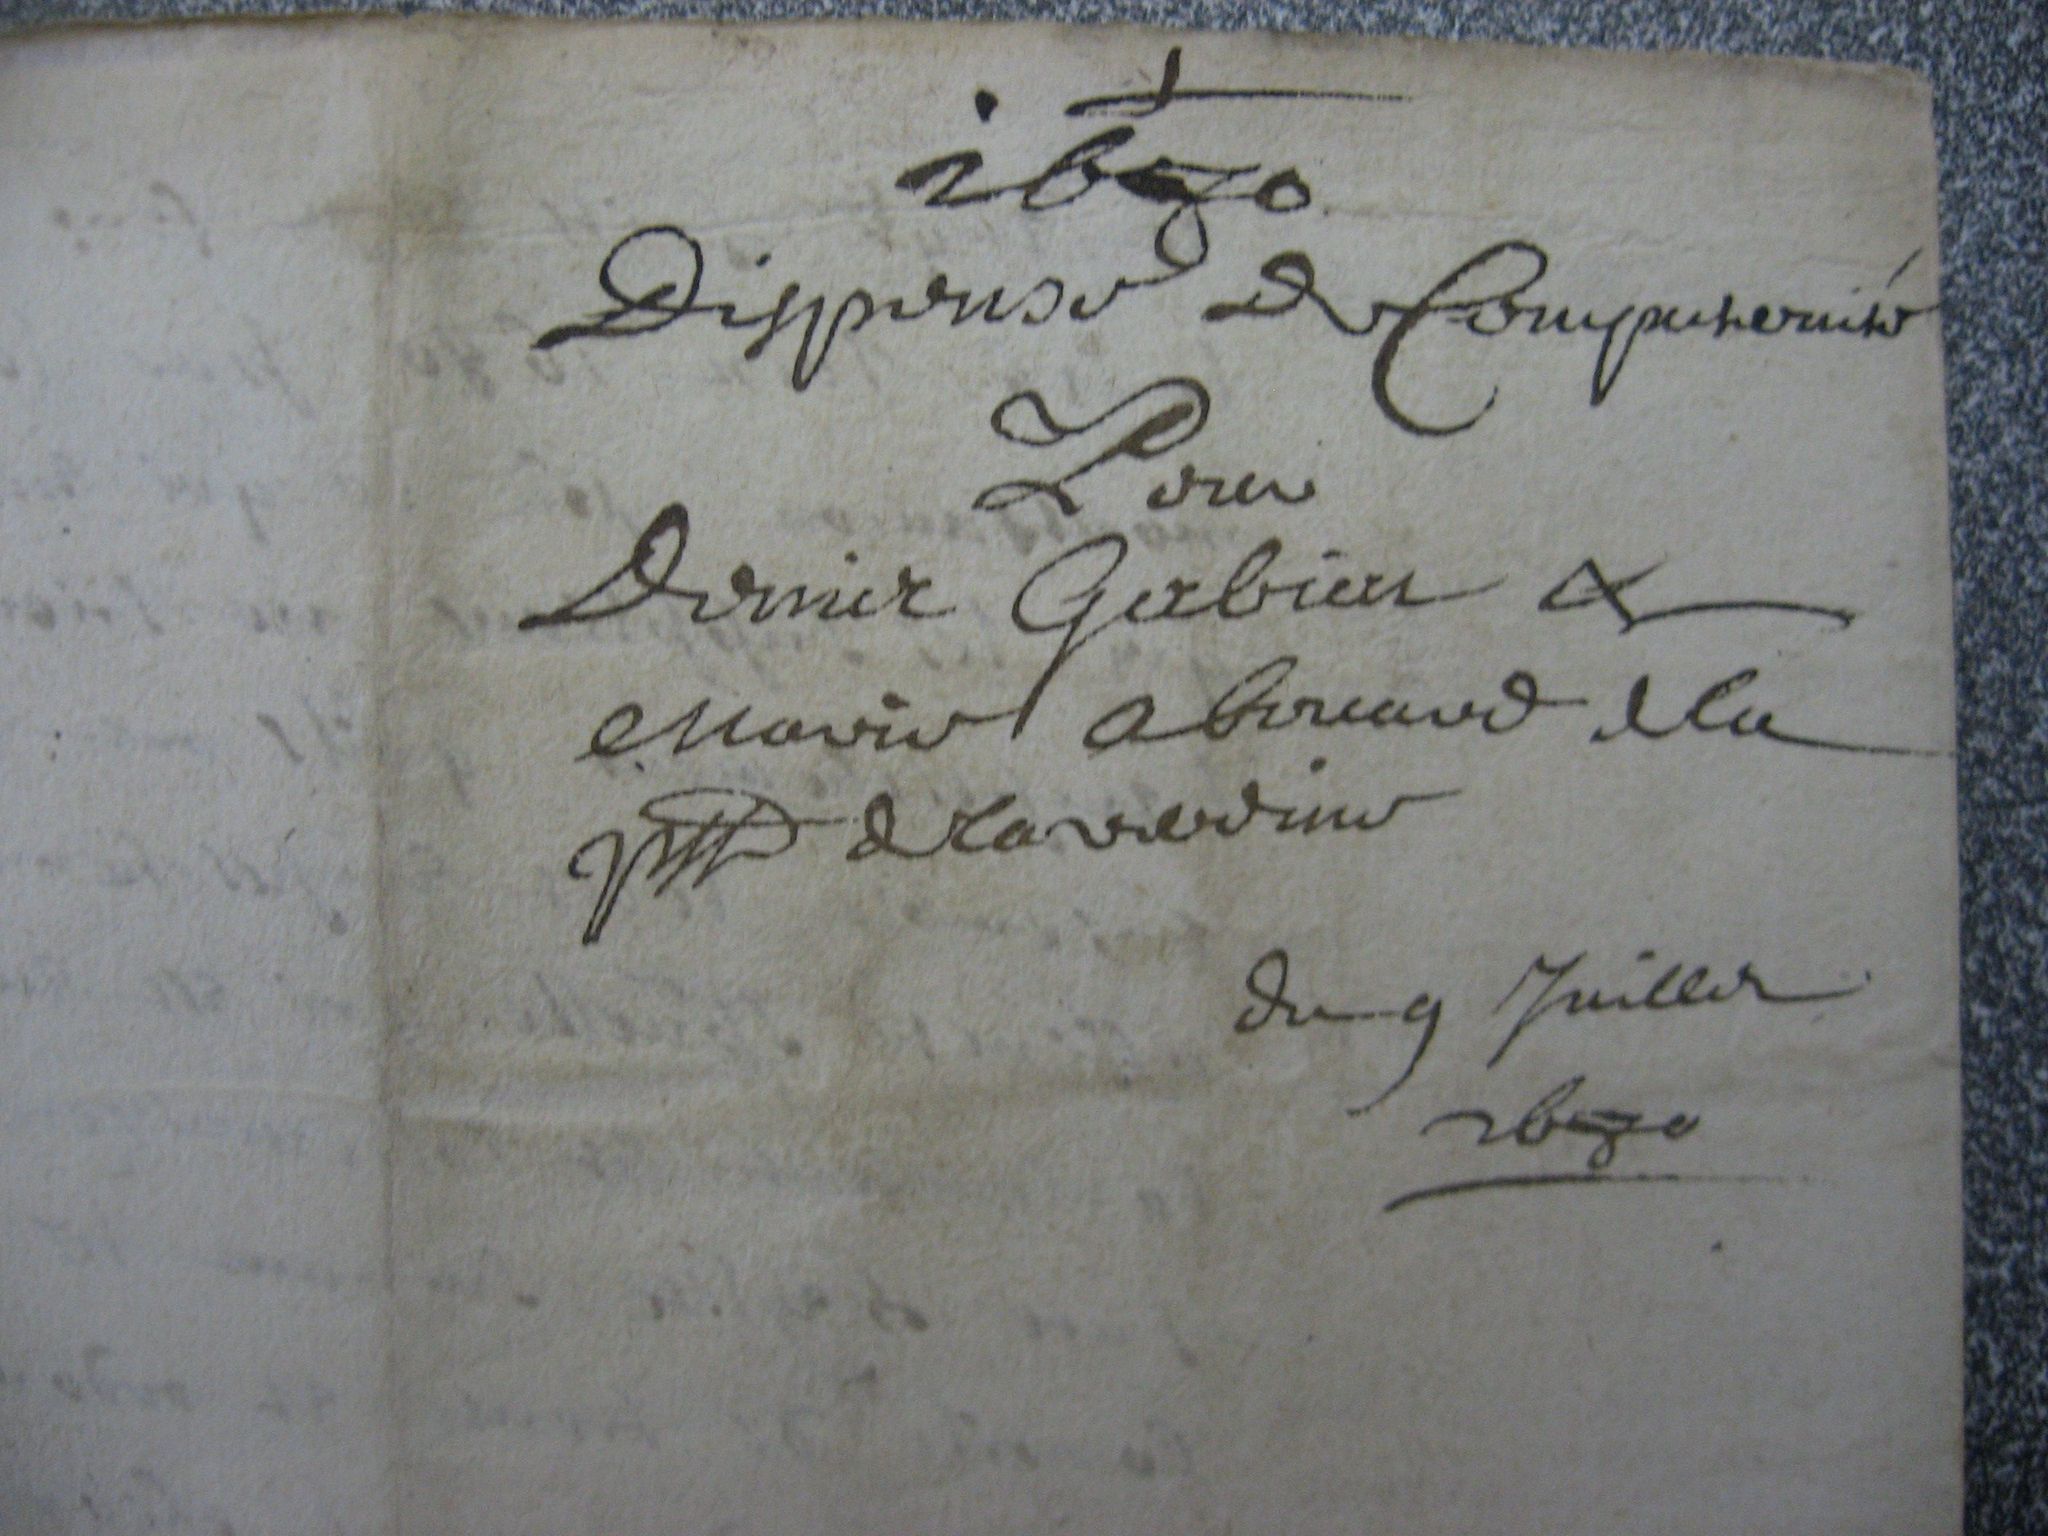 1690
Dispense de Compaternité
Pour
Denier Gerbier &
Marie Abouard de la
psse de Laverdine
du 9 Juillet
1690